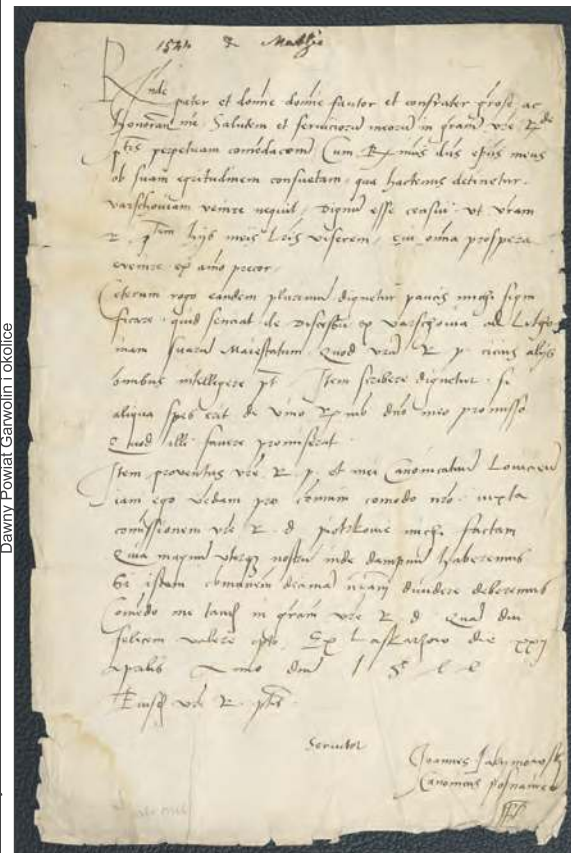 1544 & 
Rnde
pater et domine domine fautor et confrater grose ac
honoran me Salutem et serviciorum meorum in gram vre R de
ptis perpetuam comendacom Cum Rmus dns epus meus
ob suam egritudinem consuetam qua hactenus detinetur
varschoviam venire nequit, dignum esse censui ut vram
R. ptem hys meis Lris viserem, cui omnia prospera
evenire ex animo precor.
Ceterum rogo eandem plurimum dignetur paucis michi signi
ficare quid senciat de discessu ex varschovia ad Litphua
niam suarum Maiestatum Quod vra R p. cicius alys
omnibus intelligere pt. Item scribere dignetur si
aliqua spes erit de vino Rmo dno meo promisso
Quod illi favere promiserat
Item proventus vre R. p. et mei Canonicatuum Lovicien
iam ego vendam pro comuni comodo nro iuxta
comissionem vre R. d piotrkowie michi factam
Quia magnum uterque nostrum inde dampnum haberemus
Si isdem decimam dividere deberemus
Comendo me tandem in gram vre R d Quam diu
felicem valere opto. Ex Laskarzow die xxij
aprilis Anno dni 1 5 4 4
Eiusdem vre R. ptis
Servitor
Joannes
Canonicus posnanien
Dawny Powiat Garwolin i okolice